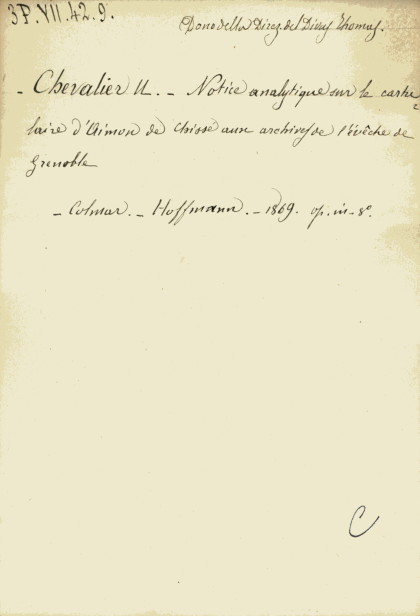 3P.VII.42.9.
Dono della Direz. del Divus Thomas.
- Chevalier U. - Notice analytique sur le cartu
laire d'Aimon de Chissé aux archives de l'évêche de
Grenoble
- Colmar. - Hoffmann. - 1869. op. in-8°.
C